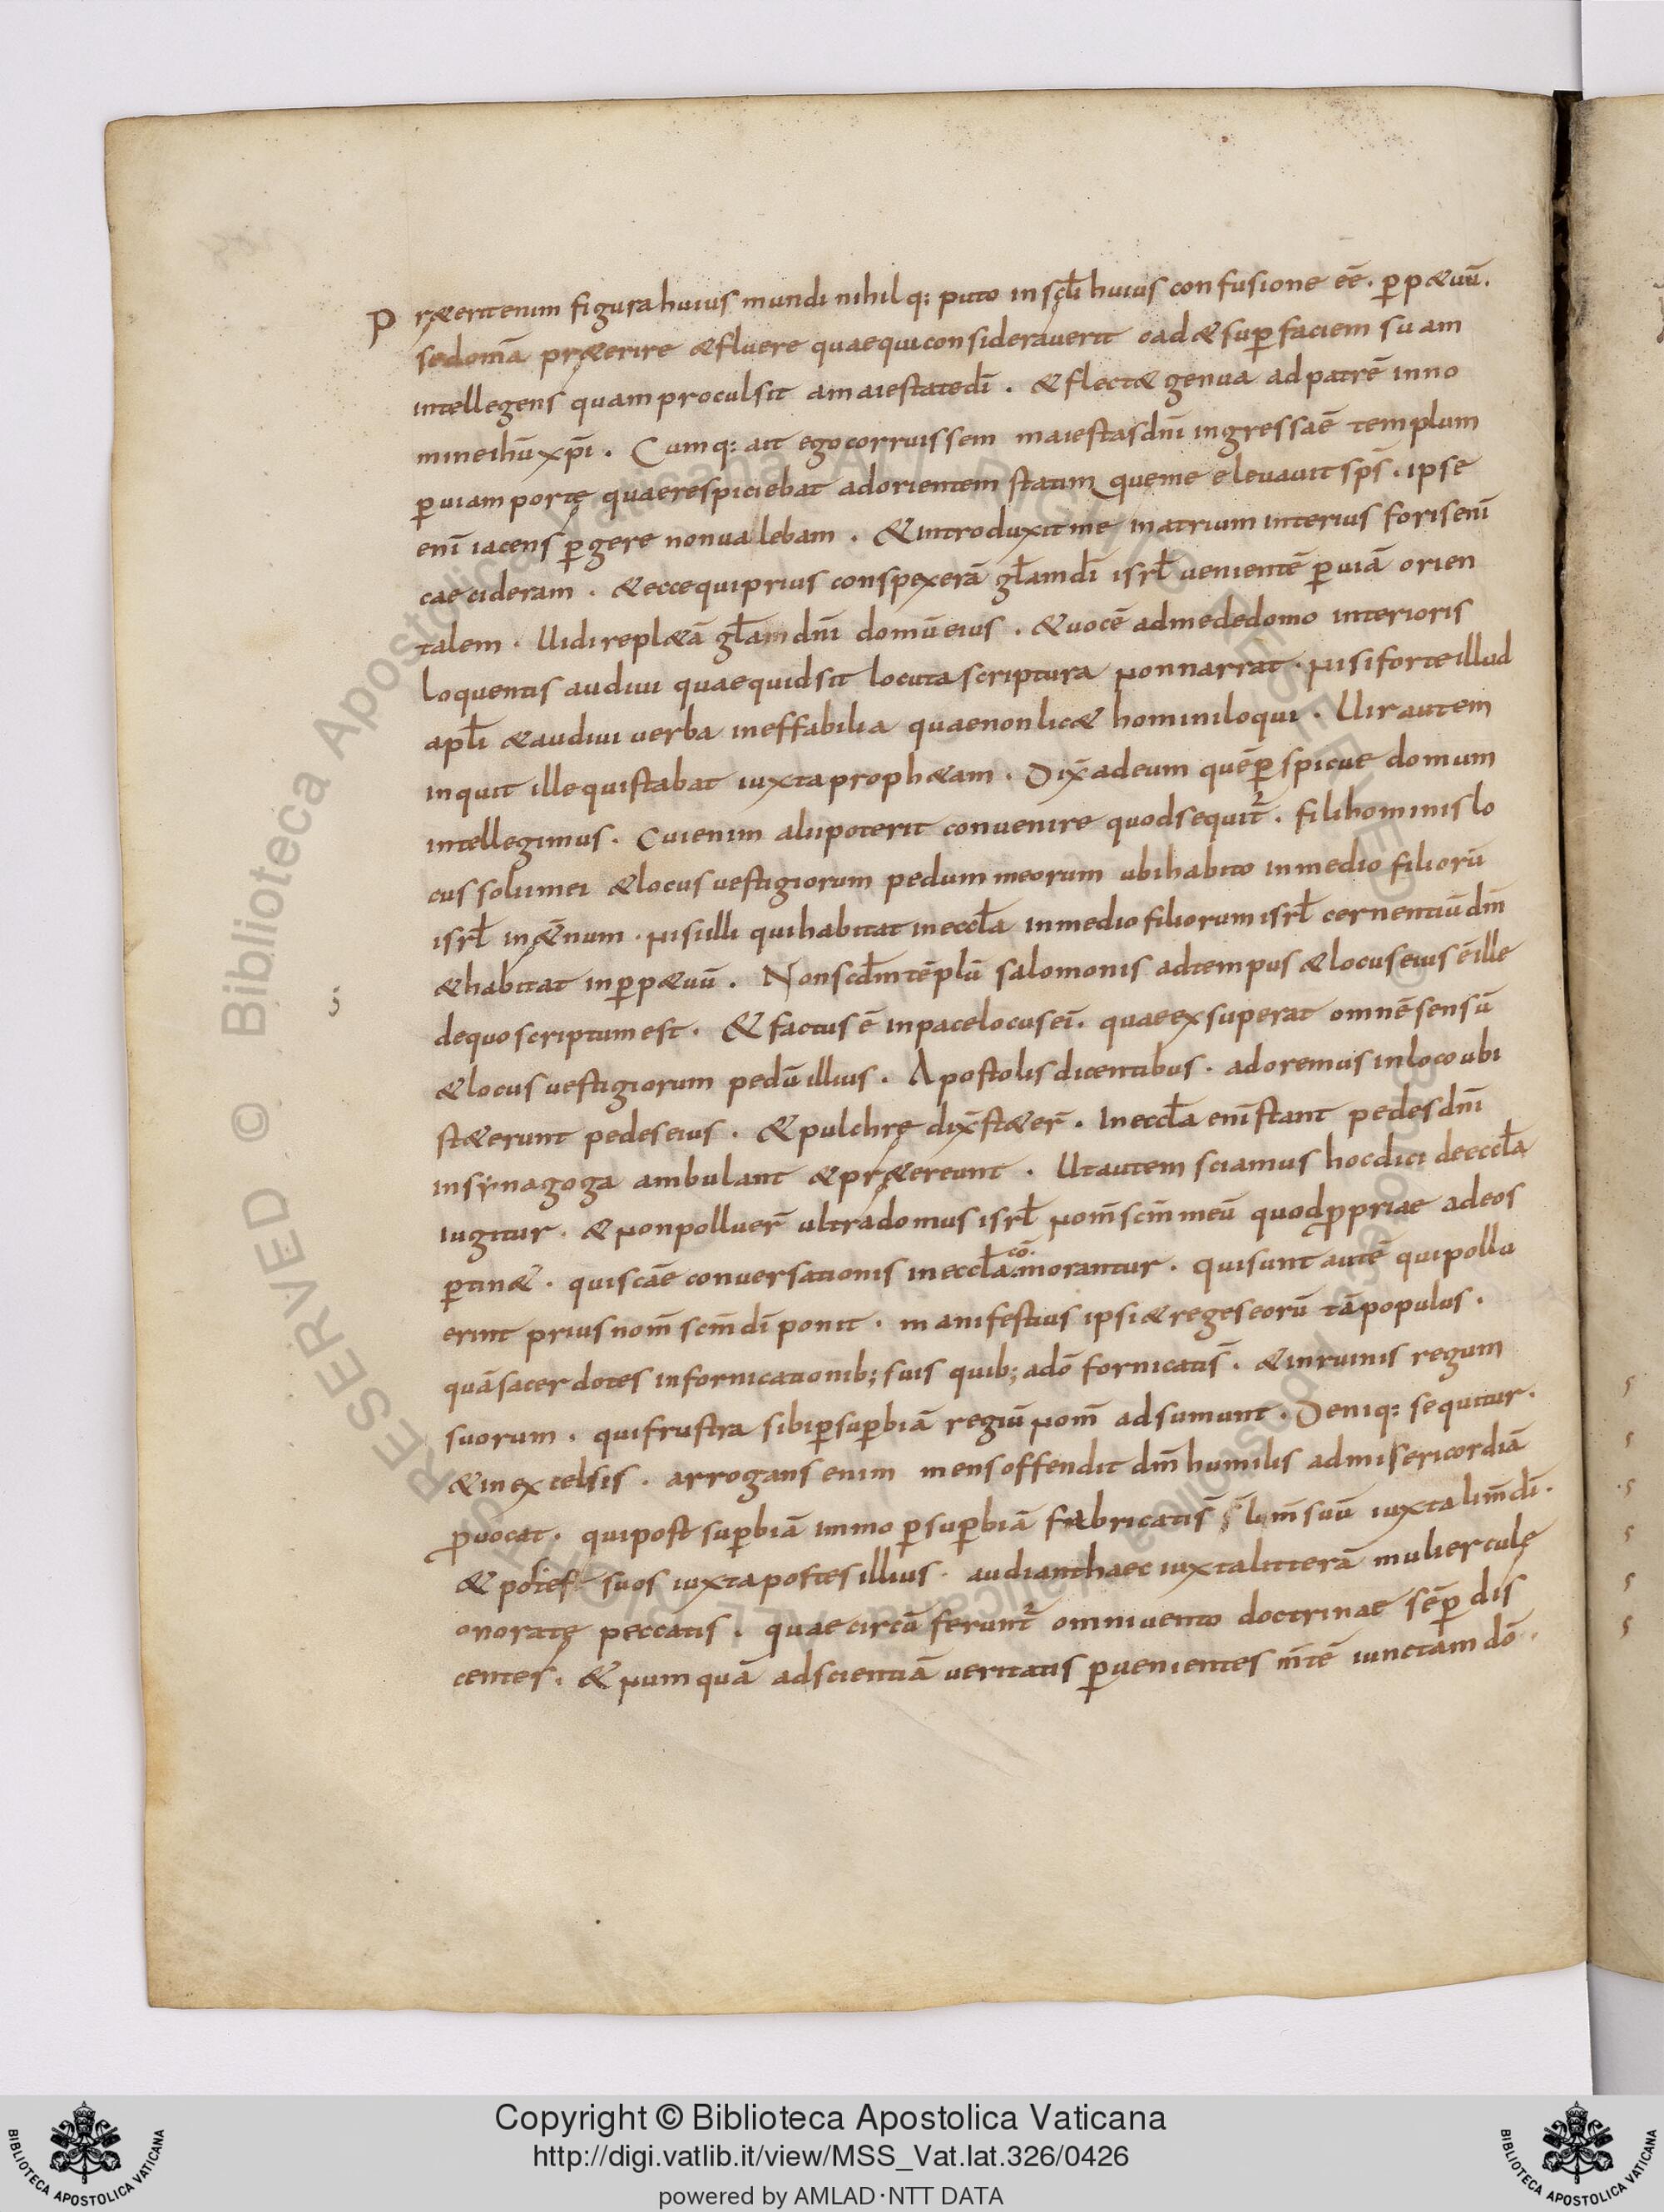 P ręteritenim figura huius mundi nihilq: puto inscli huius confusione eē. ppetuū.
sedomā pręterire &fluere quaequiconsiderauerit cad&sup faciem suam
intellegens quam proculsit amaiestatedī. &flect& genua adpatrē inno
mineihūxpī. Cumq: ait egocorruissem maiestasdnī ingressaē templum
puiam portę quaerespiciebat adorientem statim queme eleuauit sps. ipse
enī iacens pgere nonualebam. &introduxit me inatrium interius forisenī
caecideram. &eccequiprius conspexerā glam dī isrl uenientē puiā orien
talem. Uidi repl&ā glam dnī domū eius. &uocē admededomo interioris
loquentis audiui quaequidsit locuta scriptura nonnarrat. nisiforteillud
apli &audiui uerba ineffabilia quaenonlic& hominiloqui. Uir autem
inquit ille quistabat iuxtaproph&am. Dix̄ adeum quēp spicue domum
intellegimus. Cuienim alii poterit conuenire quodsequit̄. fili hominis lo
cus soliimei &locus uestigiorum pedum meorum ubihabito inmedio filiorū
isrl in&̄num. nisiilli quihabitat ineccla inmedio filiorum isrl cernentiū dm̄
&habitat inpp&uū. Nonscdm tēplū salomonis adtempus &locus eius ēille
dequoscriptum est. &factus ē inpacelocus eī. quaeexsuperat omnēsensū
&locus uestigiorum pedū illius. Apostolis dicentibus. adoremus inlocoubi
st&erunt pedes eius. &pulchrę dix̄ st&er̄. Ineccla enī stant pedes dnī
insynagoga ambulant &pr&ereunt. Utautem sciamus hocdici deeccla
iugitur. &nonpolluer̄ ultradomus isrl nom̄ scm̄ meū quodppriae adeos
ptin&. quiscāe conuersationis ineccla cō. morantur. quisunt autē quipollu
erint prius nom̄ scm̄ dī ponit. manifestius ipsi&reges eorū tā populus.
quāsacerdotes infornicationib; suis quib; adō fornicatis̄. &inruinis regum
suorum. quifrustra sibipsupbiā regiū nom̄ adsumunt. Deniq: sequitur.
&inexcelsis. arrogans enim mens offendit dm̄ humilis admisericordiā
puocat. quipost supbiā immo psupbiā fabricatis̄ lim̄ suū iuxta lim̄ dī.
&postes suos iuxtapostes illius. audianthaec iuxtalitterā mulierculę
onoratę peccatis. quaecircū ferunt̄ omniuento doctrinae sēp dis
centes. &numquā adscientiā ueritatis puenientes m̄tē iunctam dō.
Copyright © Biblioteca Apostolica Vaticana
http://digi.vatlib.it/view/MSS_Vat.lat.326/0426
powered by AMLAD·NTT DATA
BIBLIOTECA APOSTOLICA VATICANA
BIBLIOTECA APOSTOLICA VATICANA